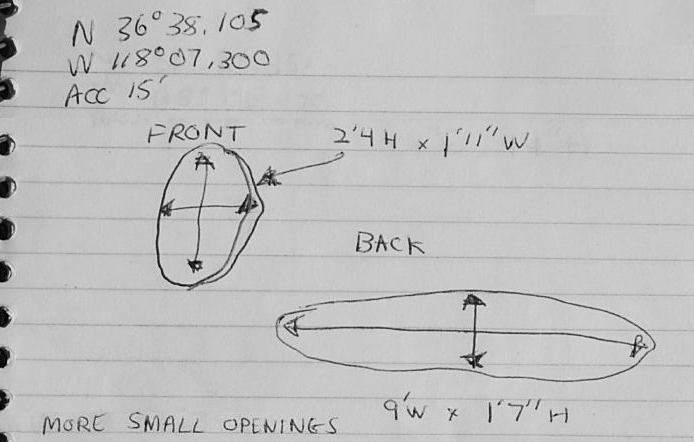 N 36°38.105
W 118°07,300
ACC 15'
FRONT
2'4H x 1'11" W
BACK
9'W x 1'7" H
MORE SMALL OPENINGS